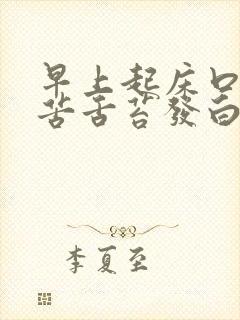 早上起床口
苦舌苔發白
李夏至